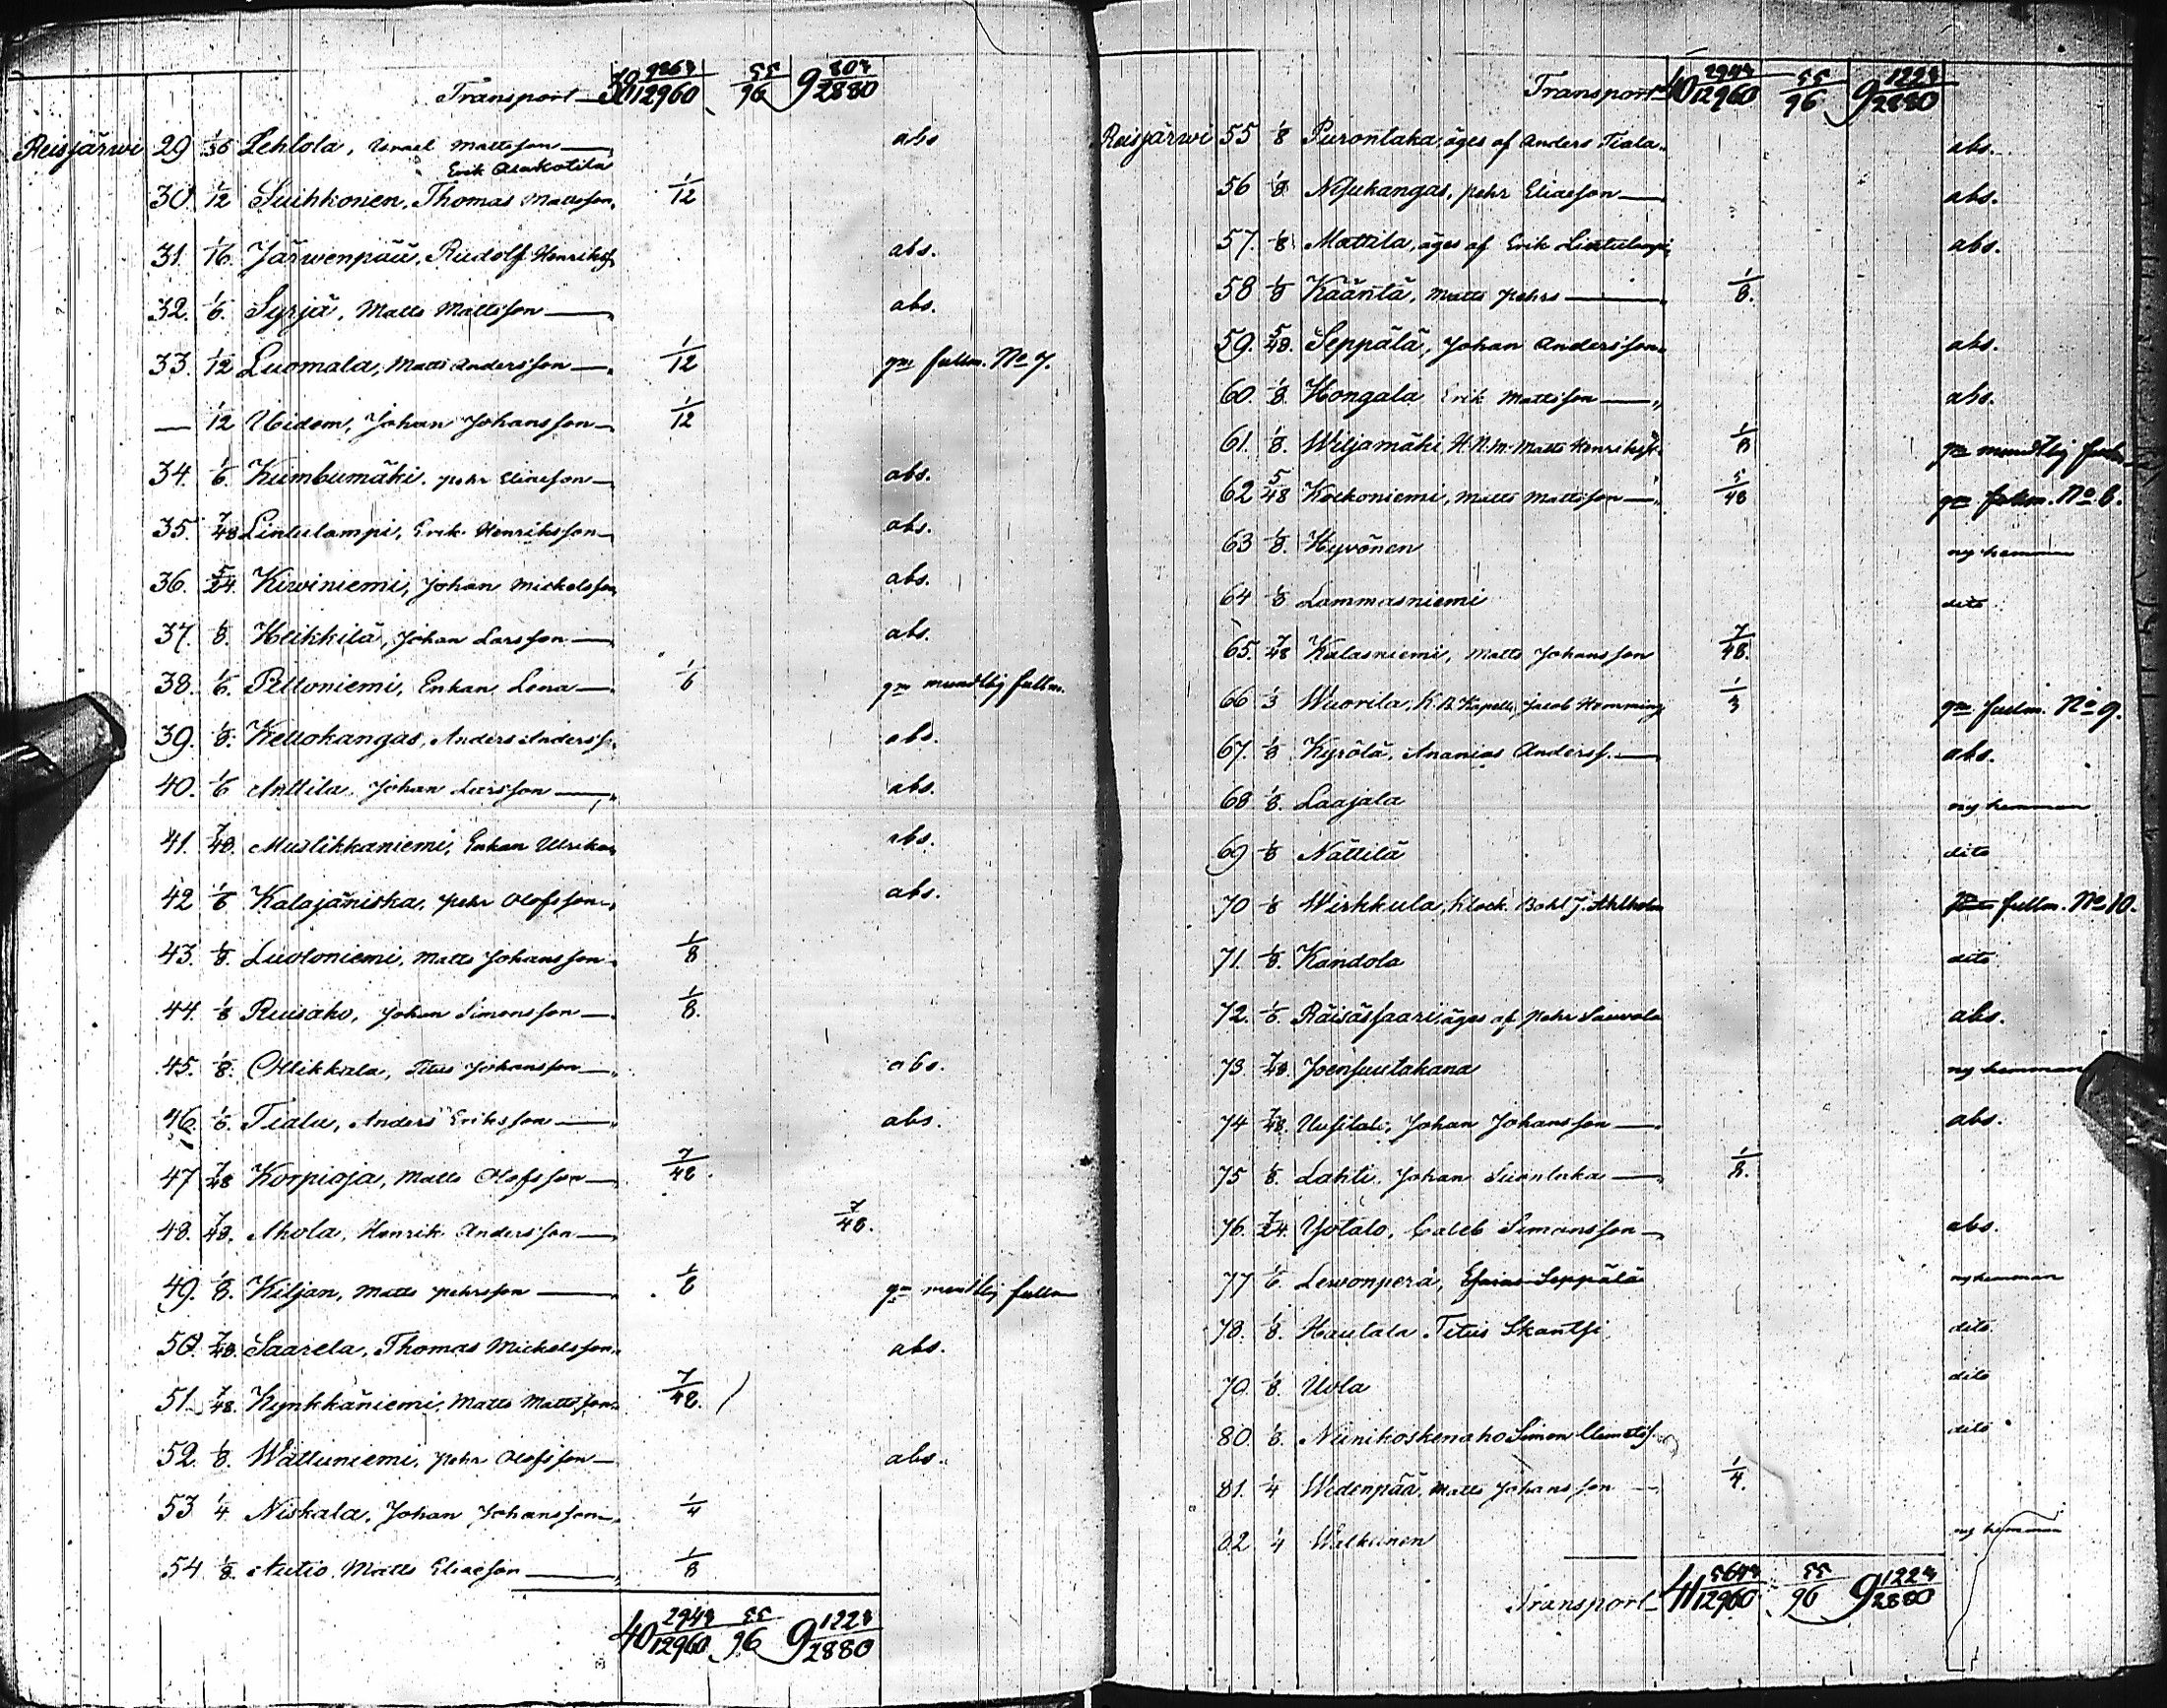 Transport 55/96 9 803/2880
Reisjärwi 29 1/36 Lehtola, Israel Mattsson abs
Erik
30. 1/12 Suihkonen, Thomas Mattsson 1/12
31. 1/16. Järwenpää, Rudolf Henrikss. abs.
32. 1/6. Syrjä, Matts Mattsson abs.
33. 1/12 Luomala, Matts Andersson 1/12 gm fullm. No 7.
— 1/12 Ibidem, Johan Johansson 1/12
34. 1/6. Kumbumäki, Pehr Eliaesson abs.
35. 7/48 Lintulampi, Erik Henriksson abs.
36. 5/24. Kiwiniemi, Johan Mickelsson abs.
37. 1/8. Heikkilä, Johan Larsson abs.
38. 1/6. Peltoniemi, Enkan Lena 1/6 gm muntlig fullm.
39. 1/8. Keltokangas, Anders Anderss. abs.
40. 1/6 Anttila, Johan Larsson abs.
41. 7/48. Mustikkaniemi, Enkan Ulrika abs.
42 1/6 Kalajäniska, Pehr Olofsson abs.
43. 1/8. Luotoniemi, Matts Johansson 1/8
44. 1/8 Ruisaho, Johan Simonsson 1/8.
45. 1/8. Ollikkala, Titus Johansson abs.
46. 1/6. Tiala, Anders Eriksson abs.
47 7/48 Korpioja, Matts Olofsson 7/48.
48. 7/48. Ahola, Henrik Andersson 7/48.
49. 1/8. Kiljan, Matts Pehrsson 1/8 gm muntlig fullm
50. 7/48. Saarela, Thomas Mickelsson abs.
51. 7/48. Kynkkäniemi, Matts Mattsson 7/48.
52. 1/8. Wättuniemi, Pehr Olofsson abs.
53 1/4 Niskala, Johan Johansson 1/4
54 1/8. Autio, Matts Eliaesson 1/8
40 2943/12960 55/96 9 1223/2880
Transport 40 2943/12960 55/96 9 1223/2880
Reisjärwi 55 1/8 Purontaka, äges af Anders Tiala abs.
56 1/8 Nijukangas, Pehr Eliaesson abs.
57. 1/8 Mattila, äges af Erik Lintulampi abs.
58 1/8 Kääntä, Matts Pehrs 1/8.
59. 5/48. Seppälä, Johan Andersson abs.
60 1/8. Hongala Erik Mattsson abs.
61. 1/8. Wiljamäki, Matts Henrikss. 1/8 gm muntlig fullm
62 5/48 Koikoniemi, Matts Mattsson 5/48 gm fullm. No 6.
63 1/8. Hyvönen ny hemman
64 1/8 Lammasniemi dito
65. 7/48 Kalasniemi, Matts Johansson 7/48.
66 1/3 Wuorila, Jacob Hemming 1/3 gm fullm. No 9.
67. 1/8 Kyrölä, Ananias Anderss. abs.
68 1/8. Laajala ny hemman
69 1/8 Nättilä dito
70 1/8 Wirkkula, Klock. Bohl J. Ahlholm gm fullm. No 10.
71. 1/8. Kandola dito
72. 1/6. Räisässaari, äges af Pehr Sauvola abs.
73. 7/48. Joensuutakana ny hemman
74 7/48. Uusitalo, Johan Johansson abs.
75 1/8. Lahti, Johan 1/8.
76. 7/24. Yötalo, Caleb Simonsson abs.
77 1/6. Lewonperä, Esaias Seppälä ny hemman
78. 1/8. Hautala Titus Skantsi dito.
70. 1/8. Uola dito
80. 1/8. Niinikoskenaho Simon dito
81. 1/4 Wedenpää, Matts Johansson 1/4.
82 1/4 Walkeinen ny hemman
Transport 41 5643/12960 55/96 9 1223/2880